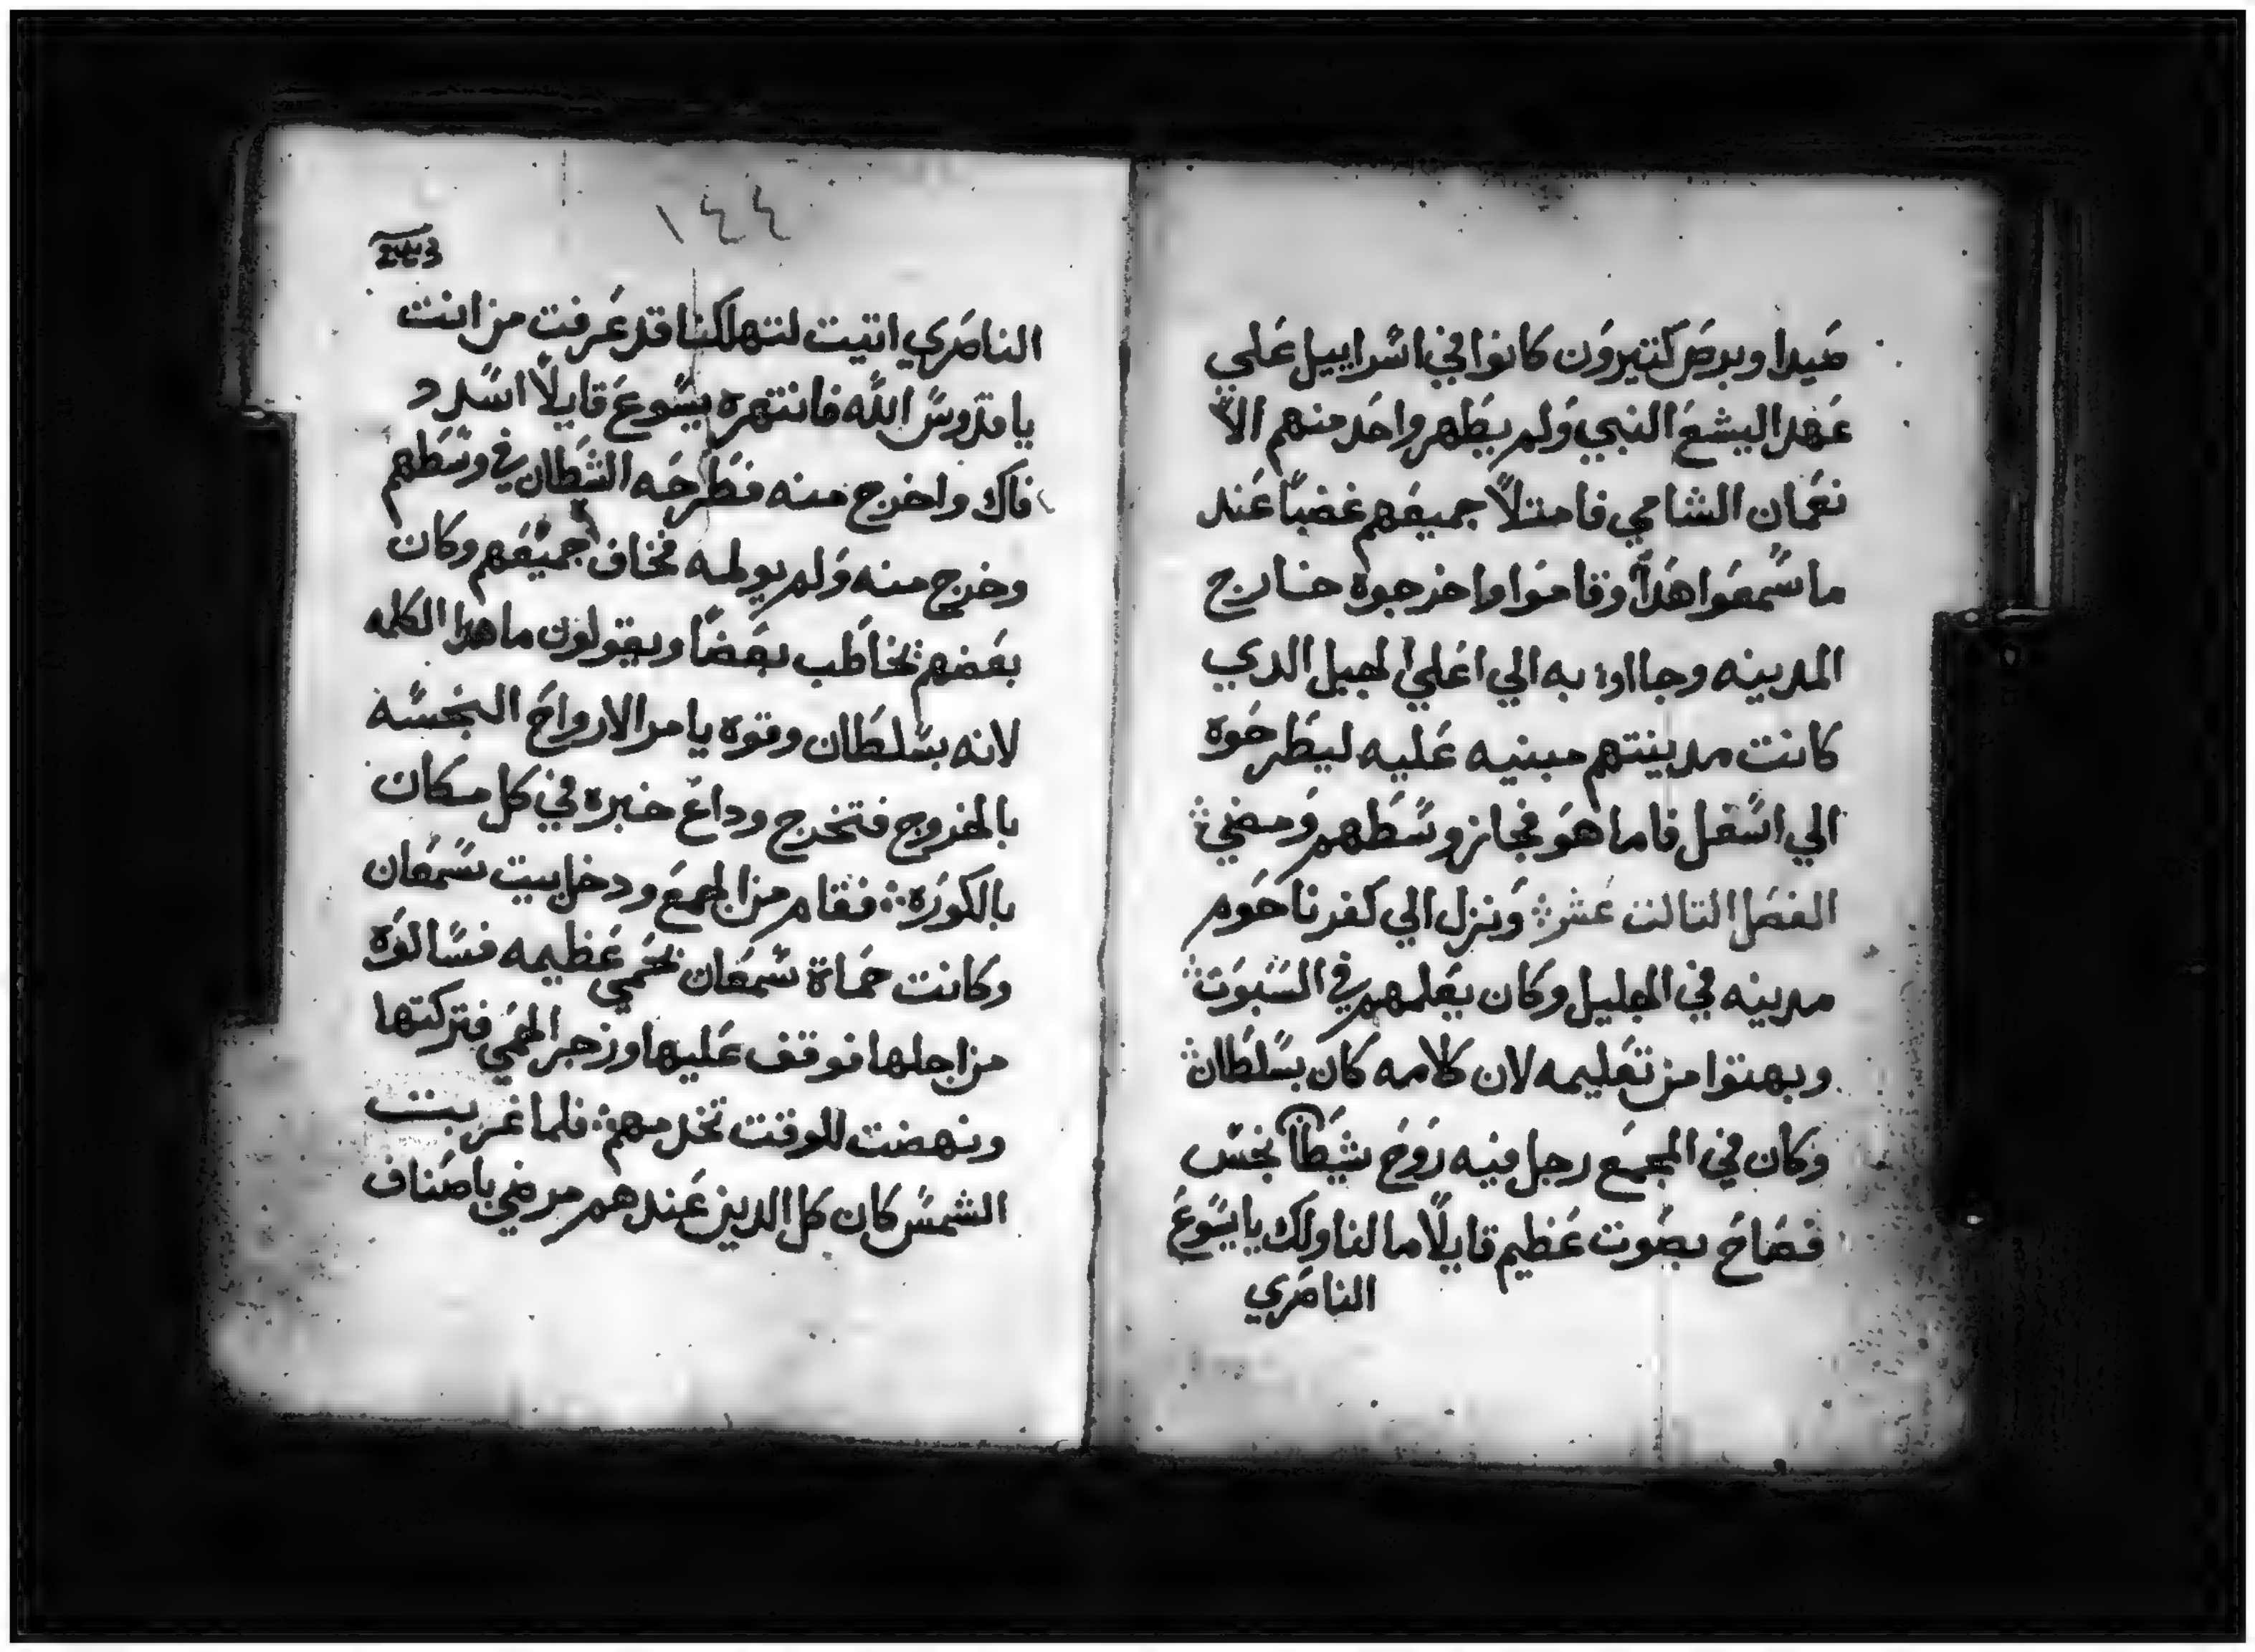 صيدا وبرص كتيرون كانوا في اسراييل علي
عهد اليشع النبي ولم يطهر واحد منهم الا
نعمان الشامي فامتلا جميعهم غضبا عند
ما سمعوا هدا وقاموا واخرجوه خارج
المدينه وجااوا به الي اعلي الجبل الدي
كانت مدينتهم مبنيه عليه ليطرحوه
الي اسفل فاما هو فجاز وسطهم ومضي
الفصل التالت عشر ونزل الي كفرناحوم
مدينه في الجليل وكان يعلمهم في السبوت
وبهتوا من تعليمه لان كلامه كان بسلطان
وكان في المجمع رجل فيه روح شيطان نجس
فصاح بصوت عظيم قايلا ما لنا ولك يا يسوع
الناصري
١٤٤
الناصري اتيت لتهلكنا قد عرفت من انت
يا قدوس الله فانتهره يسوع قايلا اسدد
فاك واخرج منه فطرحه الشيطان في وسطهم
وخرج منه ولم يولمه فخاف جميعهم وكان
بعضهم يخاطب بعضا ويقولون ما هدا الكلمه
لانه بسلطان وقوه يامر الارواح النجسه
بالخروج فتخرج وداع خبره في كل مكان
بالكوره فقام من المجمع ودخل بيت سمعان
وكانت حماة سمعان بحمي عظيمه فسالوه
من اجلها فوقف عليها وزجر الحمي فتركتها
ونهضت للوقت تخدمهم فلما غربت
الشمس كان كل الدين عندهم مرضي باصناف